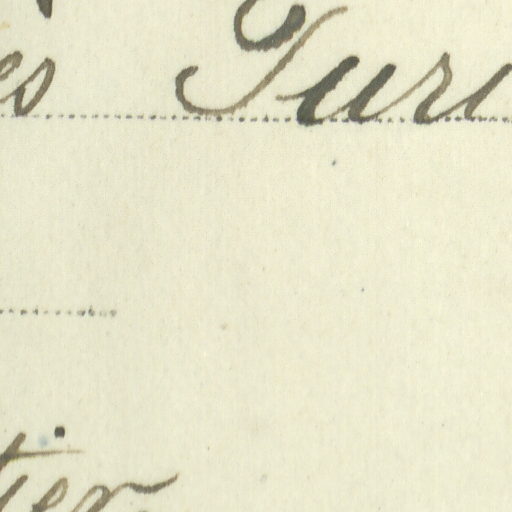 es Turi
tier